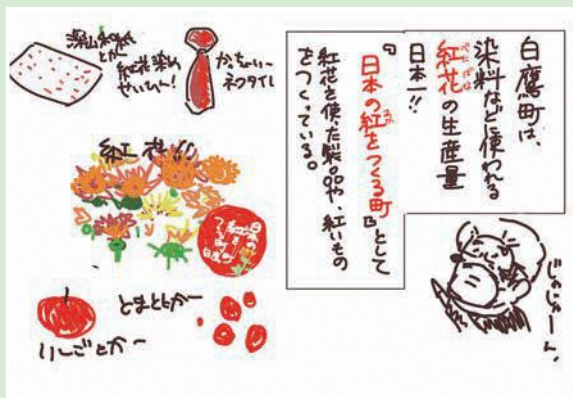 白鷹町は、
染料などに使われる
紅花の生産量
べにばな
日本一!!
『日本の紅をつくる町』として
紅花を使った製品や、紅いもの
をつくっている。
じゃじゃーん。
深山和紙
とか
紅花染め
せいひん!
かっちょいー
ネクタイし
紅花!!
日本の
紅を
つくる町
白鷹町
とまととかー
りんごとかー